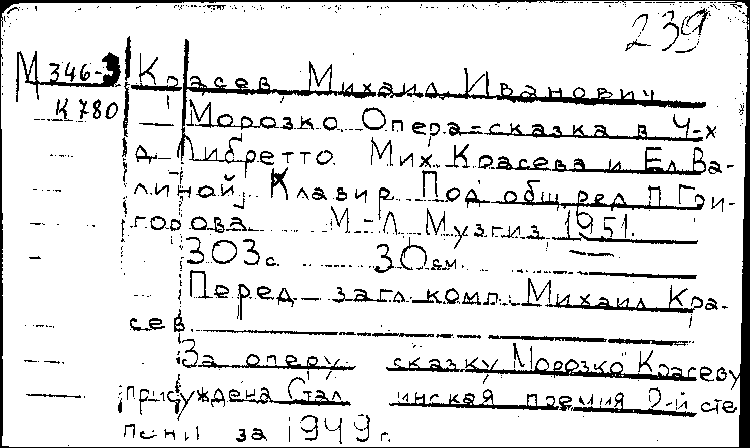 239
М 346-3 Красев, Михаил Иванович
К 780 Морозко Опера-сказка в 4-х
д. Либретто Мих. Красева и Ел. Ва-
линой, Клавир Под общ. ред. П. Гри-
горова М-Л, Музгиз, 1951.
303 с. 30 см.
Перед загл. комп. Михаил Кра-
сев
За оперу сказку Морозко Красеву
присуждена Сталинская премия 2-й сте
пени за 1949 г.